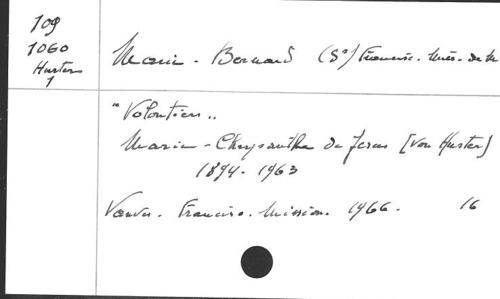 709
1060
Huster
1
Marie-Bernard (Sr) Francisc. Miss. de M
"Volontiers"
Marie-Chrysanthe de Jésus [Von Huster]
1894-1963
Vanves. Francisc. Mission. 1966. 16